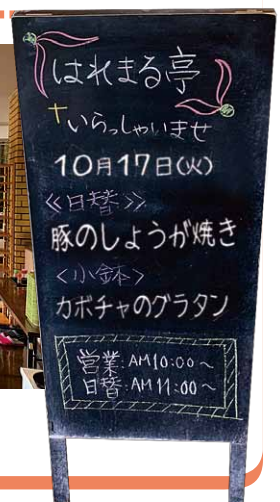 はれまる亭
いらっしゃいませ
10月17日(火)
≪日替≫
豚のしょうが焼き
<小鉢>
カボチャのグラタン
営業:AM10:00~
日替:AM11:00~